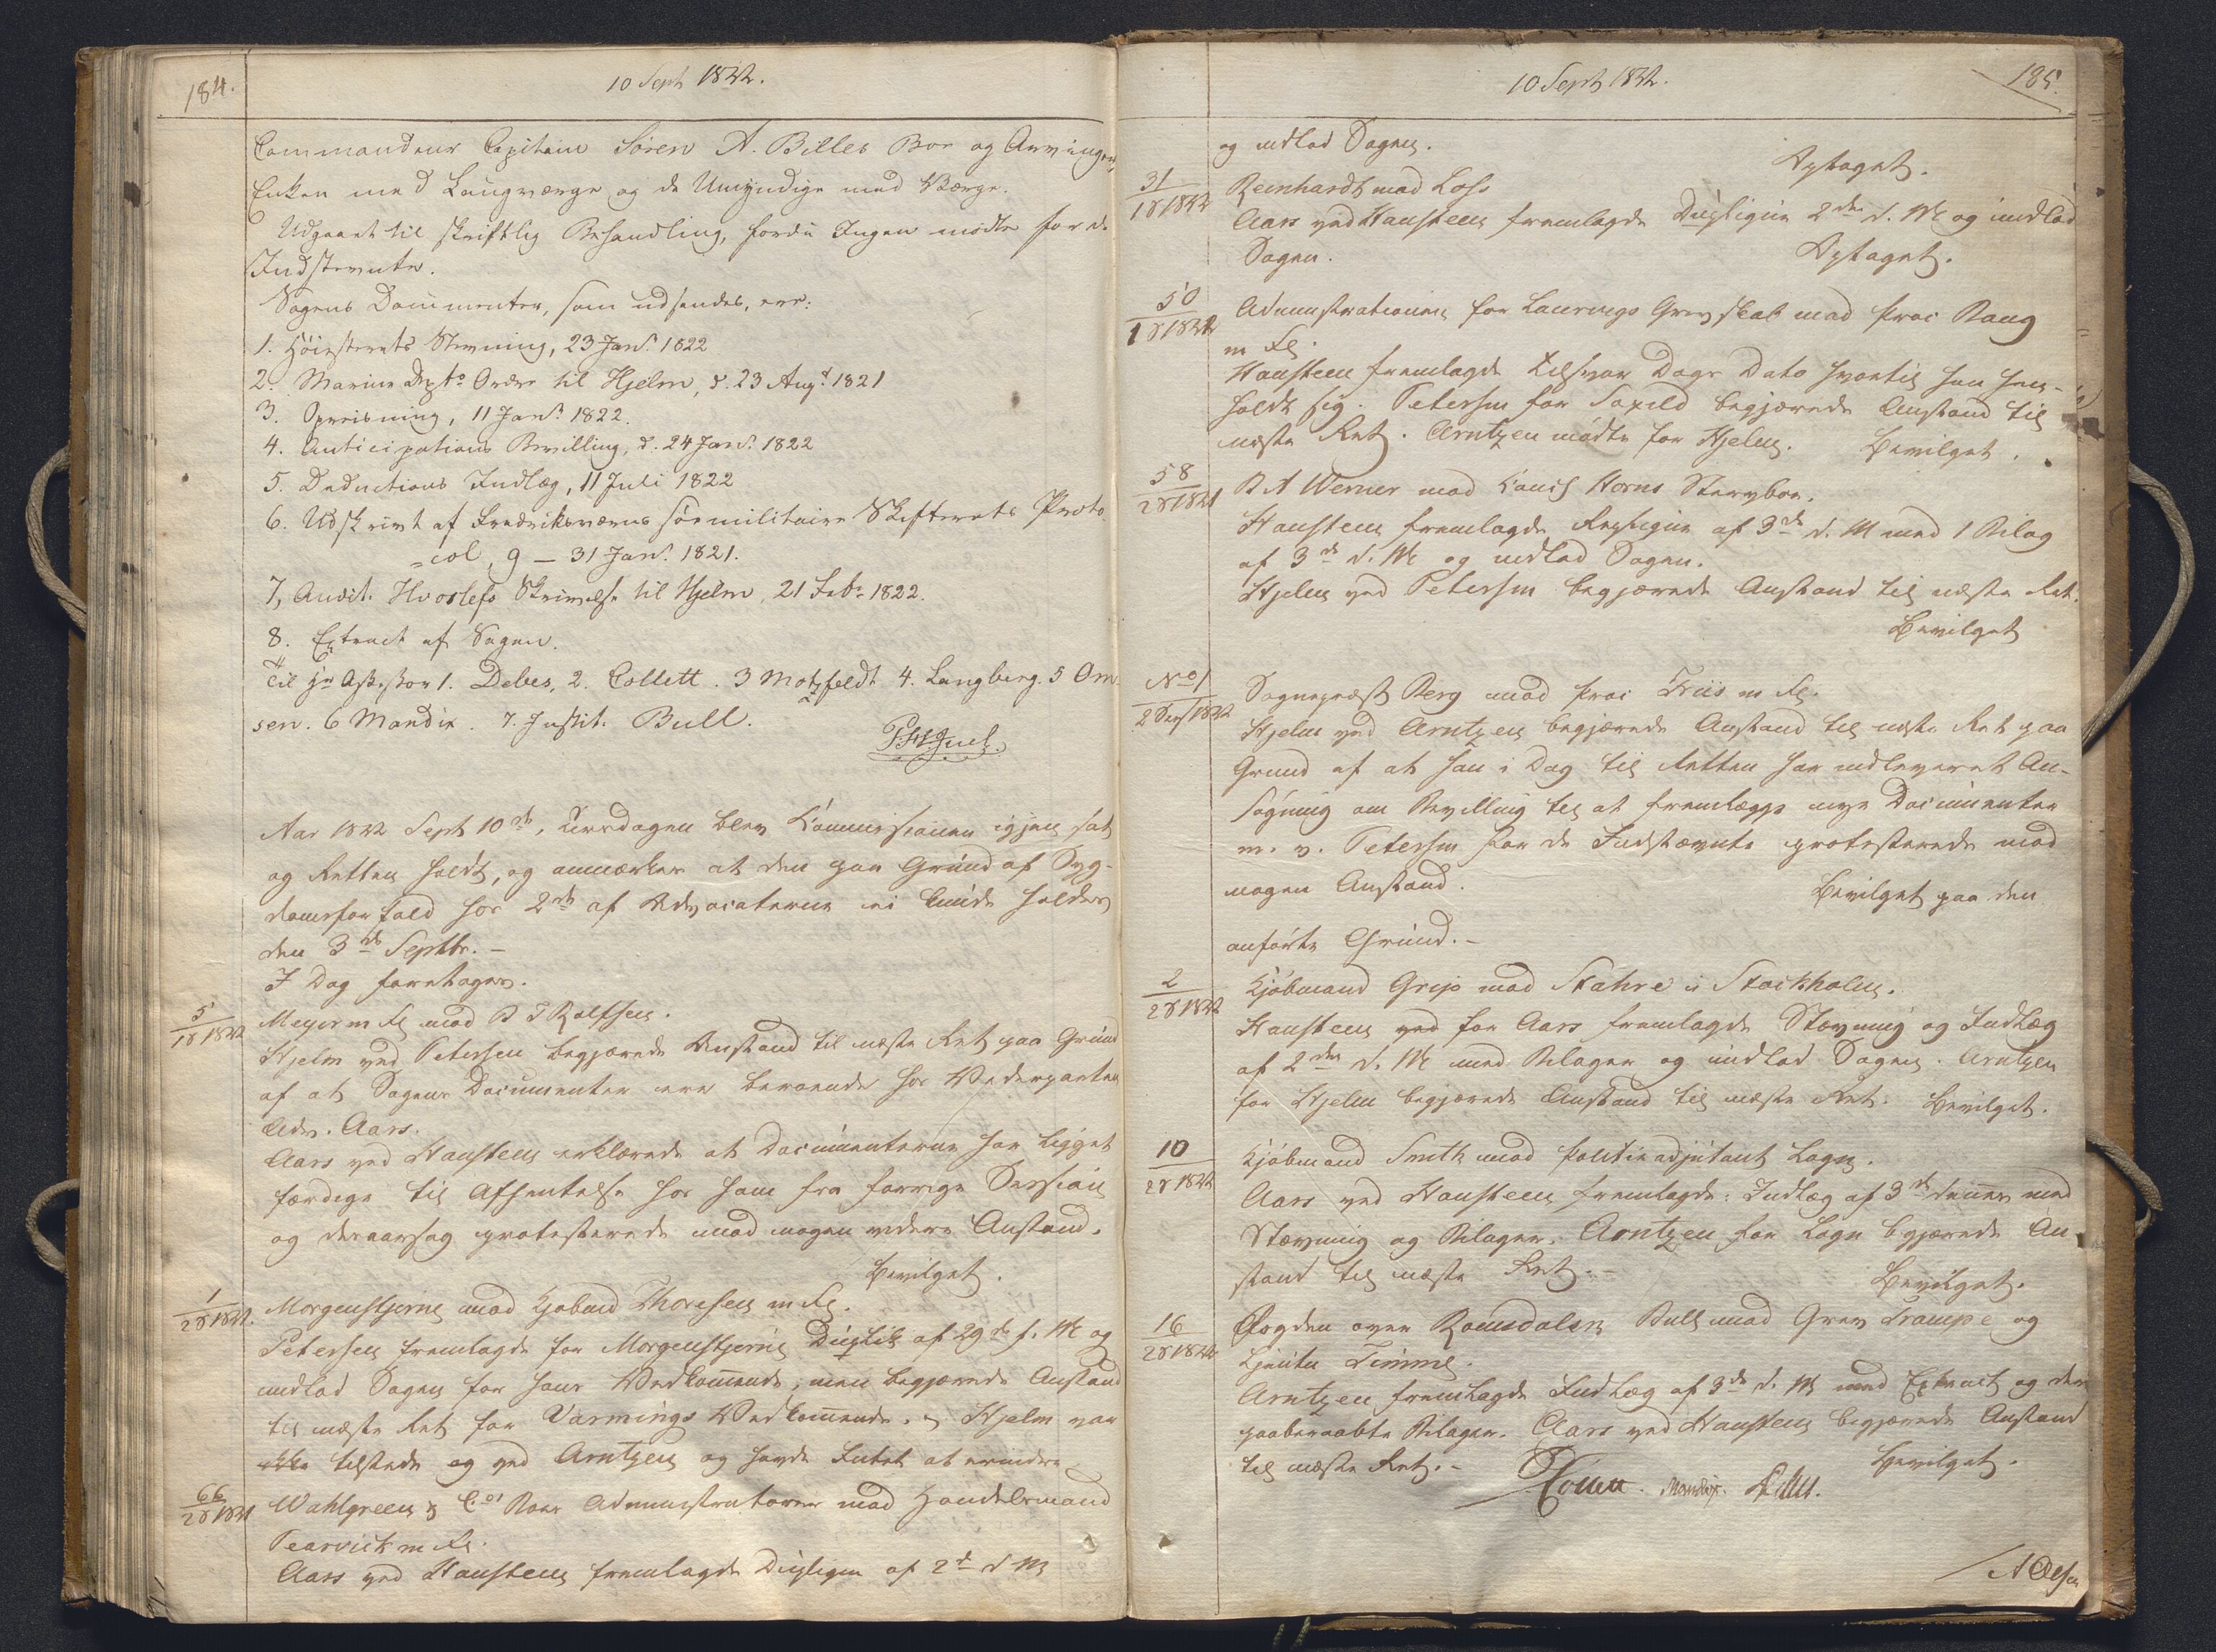 184.
10 Sept 1822.
Commandeur Capitain Sören A. Billes Boe og Arvinger,
Enken med Laugværge og de Umyndige med Værge.
Udgaaet til skriftlig Behandling, fordi Ingen mødte for de
Indstevnte.
Sagens Documenter, som udsendes, ere:
1. Höiesterets Stevning, 23 Janr. 1822
2. Marine Depts. Ordre til Hjelm, d. 23 Augt. 1821
3. Opreisning, 11 Janr. 1822.
4. Anticipations Bevilling, d. 24 Janr. 1822
5. Deductions Indlæg, 11 Juli 1822
6. Udskrivt af Fredriksværns söemilitaire Skifterets Proto
=col, 9 – 31 Janr. 1821.
7, Audit. Hvoslefs Skrivelse til Hjelm, 21 Febr. 1822.
8. Extract af Sagen.
Til Hr Assessor 1. Debes, 2. Collett. 3 Motzfeldt 4. Langberg. 5 Om
sen. 6 Mandix. 7. Justit. Bull.
Aar 1822 Sept 10de, Tirsdagen blev Commissionen igjen sat
og Retten holdt, og anmærkes at den paa Grund af Syg-
domsforfald hos 2de af Advocaterne ei kunde holdes
den 3de Septbr. –
I Dag foretages.
5
1 S 1822
Meyer m Fl mod B I Rolfsen.
Hjelm ved Petersen begjærede Anstand til næste Ret paa Grund
af at Sagens Documenter ere beroende hos Vederparten
Adv. Aars.
Aars ved Hansteen erklærede at Documenterne har ligget
færdige til Afhentelse hos ham fra forrige Session
og deraarsag protesterede mod nogen videre Anstand.
Bevilget.
1
2 S 1821.
Morgenstjerne mod Kjøbmd Thoresen m Fl.
Petersen fremlagde for Morgenstjerne Duplik af 29de f. M og
indlod Sagen for hans Vedkommende, men begjærede Anstand
til næste Ret for Varmings Vedkommende. Hjelm var
ikke tilstede og ved Arntzen og havde Intet at erindre
66
2 S 1821
Wahlgreen & Co. Boes Administratorer mod Handelsmand
Fearvick m Fl.
Aars ved Hansteen fremlagde Dupliqve af 2de d M
10 Sept 1822.
185.
og indlod Sagen.
Optaget.
31
1 S 1822
Reinhardt mod Loss
Aars ved Hansteen fremlagde Dupliqve 2den d. M og indlod
Sagen.
Optaget.
50
1 S 1822
Administrationen for Laurvigs Grevskab mod Proc Bang
m Fl.
Hansteen fremlagde Tilsvar Dags Dato hvortil han hen-
holdt sig. Petersen for Soxild begjærede Anstand til
næste Ret. Arntzen mödte for Hjelm.
Bevilget.
58
2 S 1821
B A Werner mod Horns Stervboe.
Hansteen fremlagde Repliqve af 3de d. M med 1 Bilag
af 3de d. M og indlod Sagen.
Hjelm ved Petersen begjærede Anstand til næste Ret.
Bevilget
No 1
2 Ses 1822
Sognepræst Berg mod Proc Friis m Fl.
Hjelm ved Arntzen begjærede Anstand til næste Ret paa
Grund af at han i Dag til Retten har indleveret An-
søgning om Bevilling til at fremlægge nye Documenter
m. v. Petersen for de Indstævnte protesterede mod
nogen Anstand.
Bevilget paa den
anførte Grund. –
2
2 S 1822
Kjøbmand Grip mod Stahre i Stockholm.
Hansteen ved for Aars fremlagde Stævning og Indlæg
af 2den d. M med Bilager og indlod Sagen. Arntzen
for Hjelm begjærede Anstand til næste Ret.
Bevilget.
10
2 S 1822
Kjøbmand Smith mod Politieadjutant Lagn.
Aars ved Hansteen fremlagde: Indlæg af 3de dennes med
Stævning og Bilager. Arntzen for Lagn begjærede An
stand til næste Ret. –
Bevilget.
16
2 S 1822
Fogden over Romsdalen Bull mod Grev Trampe og
Lieutn Timme.
Arntzen fremlagde Indlæg af 3de d. M med Extract og de
paaberaabte Bilager. Aars ved Hansteen begjærede Anstand
til næste Ret. –
Bevilget.
Mandix. Bull.